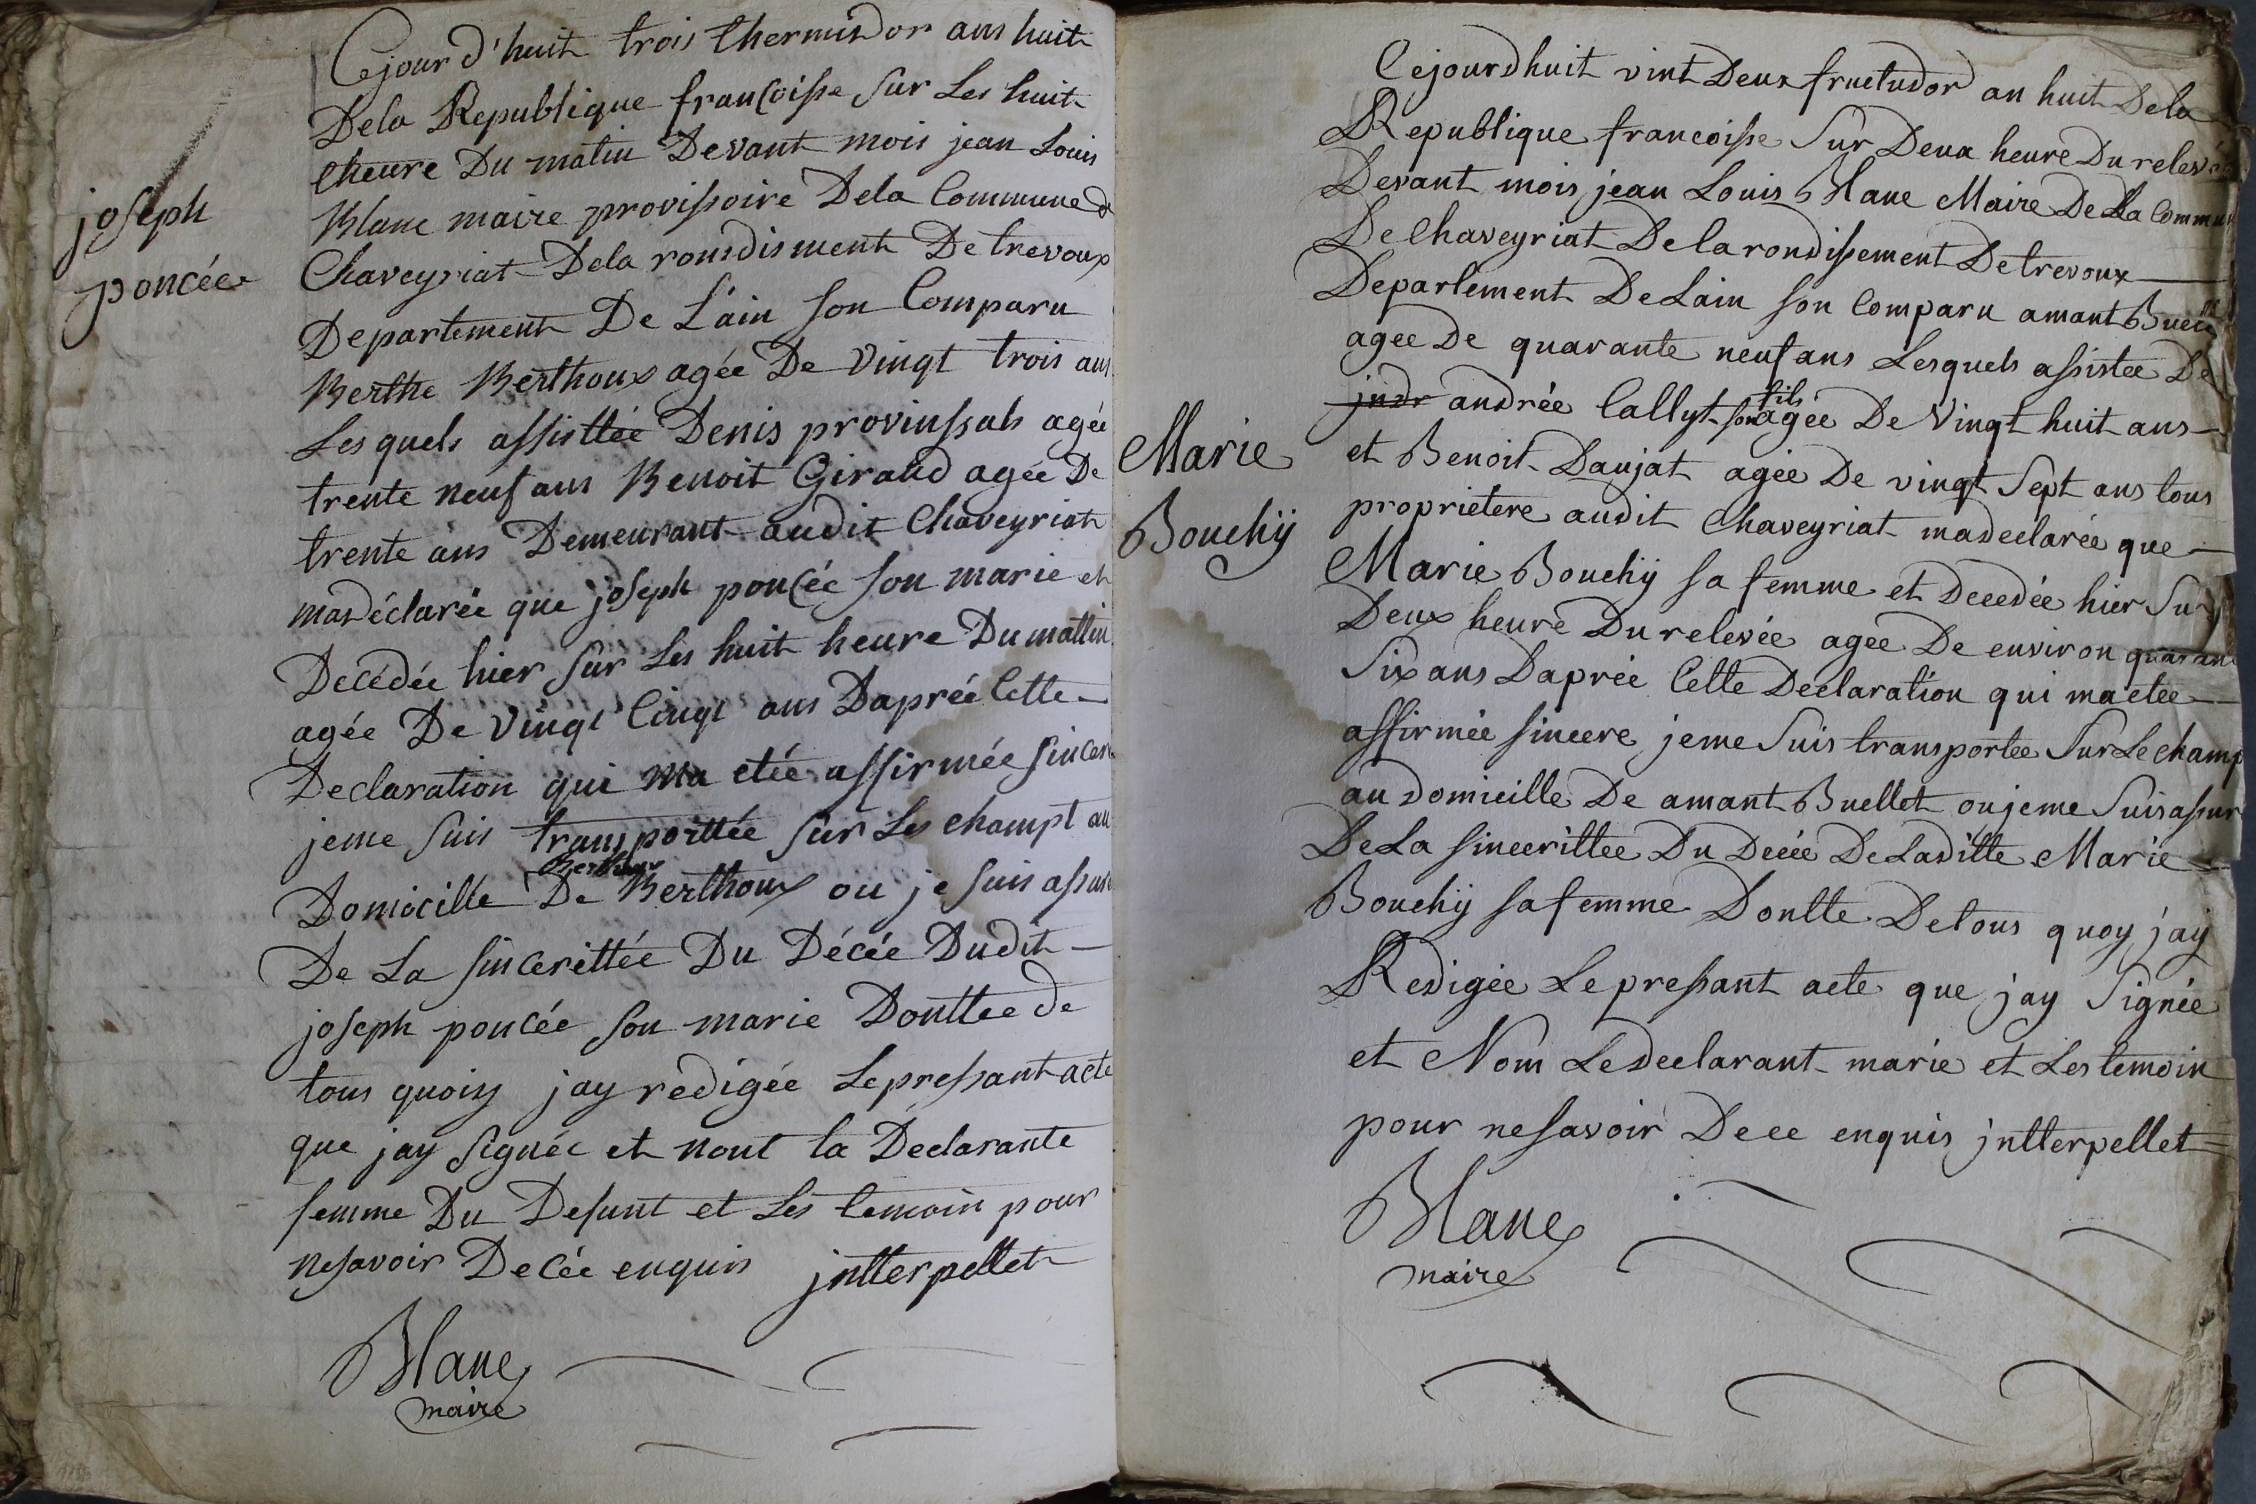 Cejourd'huit trois thermisdor ans huit
Dela Republique françoisse sur Les huit
theure Du matin Devant mois jean Louis
Blanc maire provissoire Dela Commune de
Chaveyriat Dela rondisment De trevoux
Departement De L'ain son Comparu
Berthe Berthoux agée De Vingt trois ans
Lesquels assisttée Denis provinssals agée
trente neuf ans Benoit Giraud agée De
trente ans Demeurant audit Chaveyriat
ma déclarée que joseph poncée son marie et
Decédée hier sur Les huit heure Du mattin
agée De Vingt Cinqt ans Daprée Cette
Declaration qui ma etée affirmée sincere
jeme suis transporttée sur Les champt au
Domicille De Berthoux ou je suis assuré
De La sincerittée Du Décée Dudit
joseph poncée son marie Donttee de
tous quoiy jay redigée Lepressant acte
que jay signée et nont la Declarante
femme Du Defunt et Les temoin pour
nesavoir Decée enquis jntterpellet
Blanc
maire
joseph
poncée
Cejourdhuit vint Deux fructudor an huit Dela
Republique francoisse Sur Deux heure Du relevée
Devant mois jean Louis Blanc Maire De La Commune
De Chaveyriat De larondissement De trevoux
Departement De Lain son Comparu amant
agee De quarante neuf ans Lesquels assistee De
jndr andrée Callyt son fils agée De Vingt huit ans
et Benoit Daujat agée De vingt Sept ans tous
proprietere audit Chaveyriat madeclarée que
Marie Bouchÿ sa femme et Decedée hier Sur
Deux heure Du relevée agee De environ quarante
Six ans Daprée Cette Declaration qui maetee
affirmée sincere jeme Suis transportee Sur Le champ
au domicille De amant Buellet oujeme Suis assur
De La sincerittee Du Decée De Laditte Marie
Bouchÿ sa femme Dontte Detous quoy jay
Redigée Le pressant acte que jay Signée
et Nom Ledeclarant marie et Les temoin
pour nesavoir Dece enquis jntterpellet
Blanc
maire
Marie
Bouchÿ